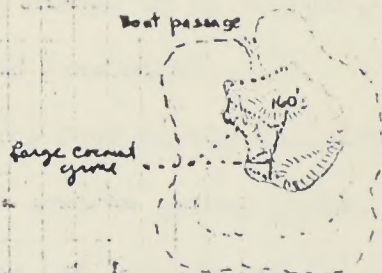 Boat passage
160'
Large coconut
grove